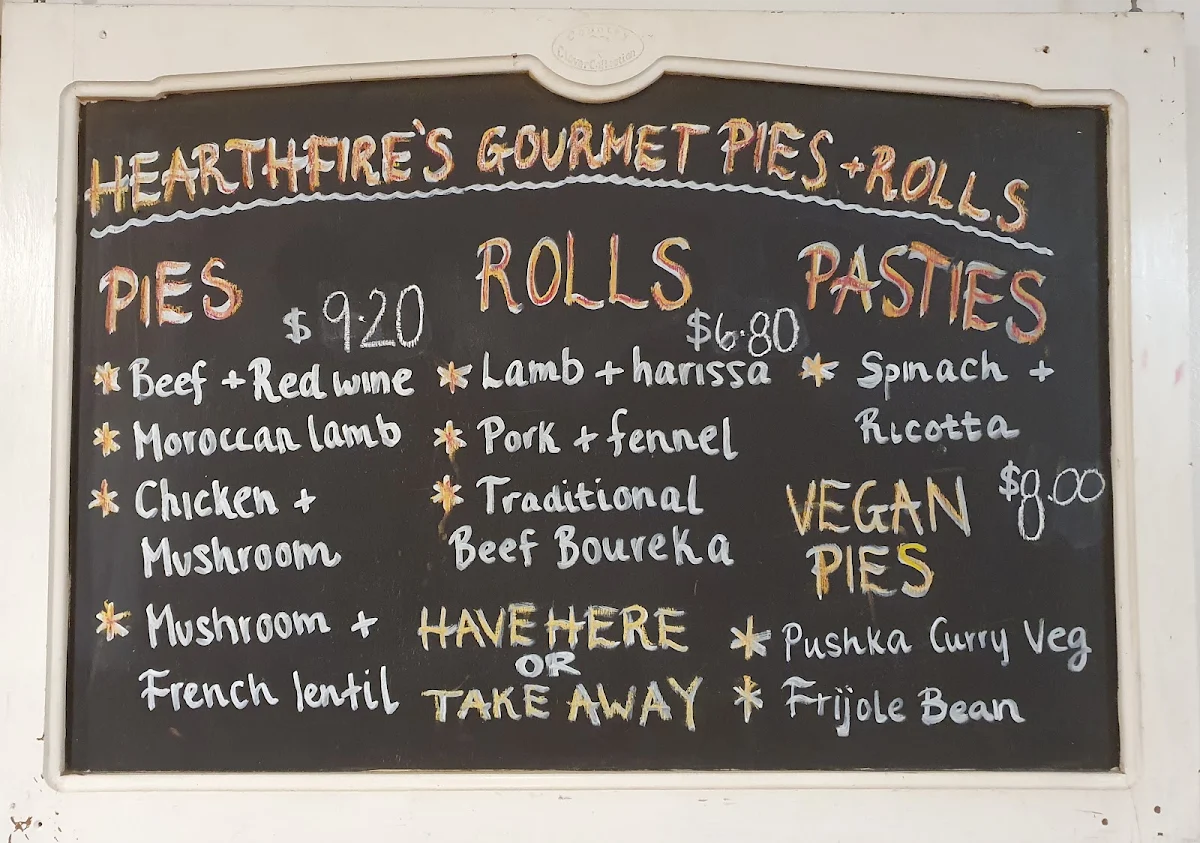 HEARTHFIRE'S GOURMET PIES + ROLLS
PIES
$9.20
* Beef + Red wine
* Moroccan lamb
* Chicken +
Mushroom
* Mushroom +
French lentil
ROLLS
$6.80
* Lamb + harissa
* Pork + fennel
* Traditional
Beef Boureka
HAVE HERE
OR
TAKE AWAY
PASTIES
* Spinach +
Ricotta
$8.00
VEGAN
PIES
* Pushka Curry Veg
* Frijole Bean